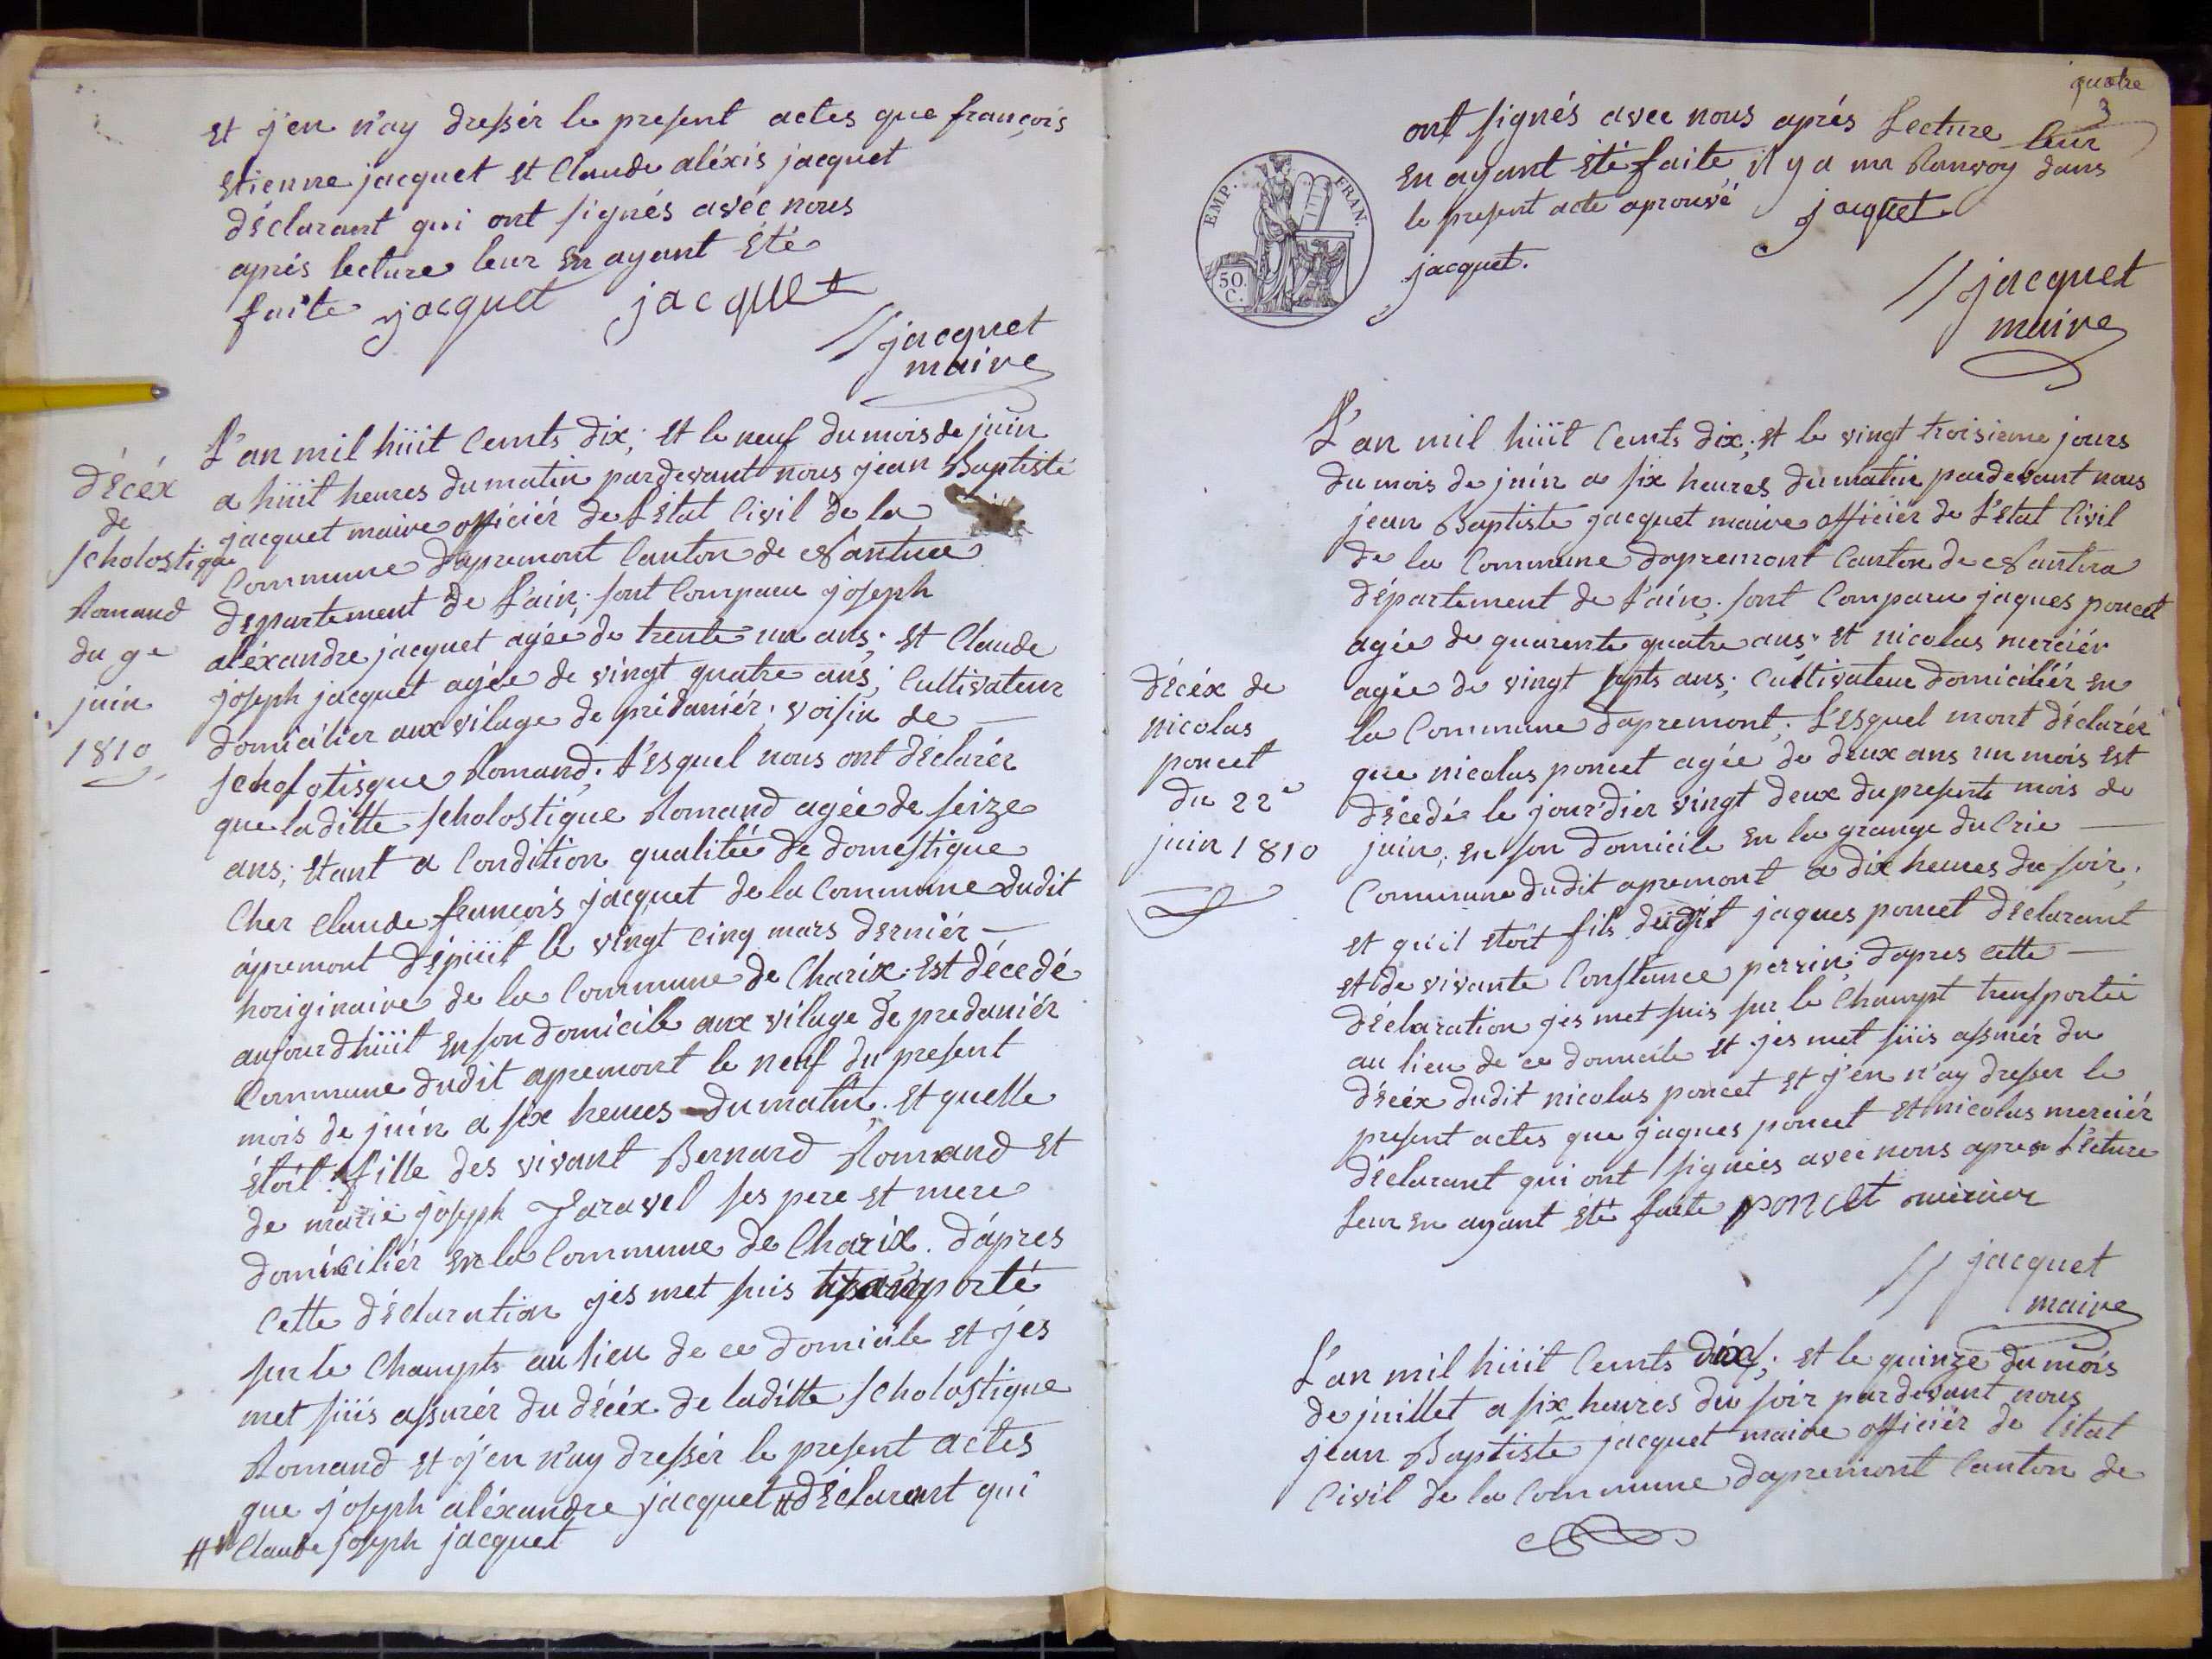 et j'en n'ay dressér le present actes que françois
Etienne jacquet et Claude aléxis jacquet
déclarant qui ont signés avec nous
aprés lecture leur en ayant été
faite jacquet jacquet
jacquet
maire
décéx
de
scholostique
Romand
du 9e
juin
1810
L'an mil hüit Cents dix; et le neuf du mois de juin
a hüit heures du matin pardevant nous jean Baptiste
jacquet maire officiér de L'Etat Civil de la
Commune d'apremont Canton de Nantua
departement de L'ain; sont Comparu joseph
aléxandre jacquet agée de trente un ans; et Claude
joseph jacquet agée de vingt quatre ans; Cultivateur
domicilier aux vilage de prédaniér; voisin de
scholotisque Romand; L'esquel nous ont déclarér
que laditte scholostique Romand agée de seize
ans; etant a Condition qualitée de domestique
Cher Claude françois jacquet de la Commune dudit
apremont dépuit le vingt cinq mars derniér
horiginaire de la Commune de Charix; est décedé
aujourdhüit en son domicile aux vilage de predaniér
Commune dudit apremont le neuf du present
mois de juin a six heures du matin; et quelle
étoit fille des vivant Bernard Romand et
de marie joseph Jaravel ses pere et mere
domiciliér en la Commune de Charix. d'apres
Cette déclaration jes met suis transporté
sur le Champts au lieu de ce domicile et jes
met süis assurér du décéx de laditte scholostique
Romand et j'en n'ay dressér le present actes
que joseph aléxandre jacquet # déclarant qui
# Claude joseph jacquet
quatre
3
EMP. FRAN.
50.
C.
ont signés avec nous aprés Lecture leur
en ayant été faite, il y a un Ranvoy dans
le present acte aprouvé jacquet
jacquet.
jacquet
maire
décéx de
nicolas
poncet
du 22e
juin 1810
L'an mil hüit Cents dix; et le vingt troisieme jours
du mois de juin a six heures du matin pardevant nous
jean Baptiste jacquet maire officiér de L'Etat Civil
de la Commune dapremont Canton de Nantua
département de L'ain; sont Comparu jaques poncet
agée de quarente quatre ans; et nicolas merciér
agée de vingt septs ans; Cultivateur domiciliér en
la Commune d'apremont; L'esquel mont déclarér
que nicolas poncet agée de deux ans un mois est
décedé le jour'dier vingt deux du present mois de
juin; en son domicile en la grange du Crie
Commune dudit apremont a dix heures du soir;
et qu'il etoit fils dudit jaques poncet déclarant
et de vivante Constance perrin; d'apres cette
déclaration jes met suis sur le Champt transportée
au lieu de ce domicile et jes met süis assurér du
décéx dudit nicolas poncet et j'en n'ay dresser le
present actes que jaques poncet et nicolas merciér
déclarant qui ont signées avec nous apres L'ecture
leur en ayant été faite poncet mercier
jacquet
maire
L'an mil hüit Cents dix; et le quinze du mois
de juillet a six heures du soir par devant nous
jean Baptiste jacquet maire officiér de L'etat
Civil de la Commune dapremont Canton de